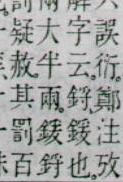 誤衍。鄭注攷
字云。鋝鍰也。
大半兩。鍰鋝
疑赦。其罰百